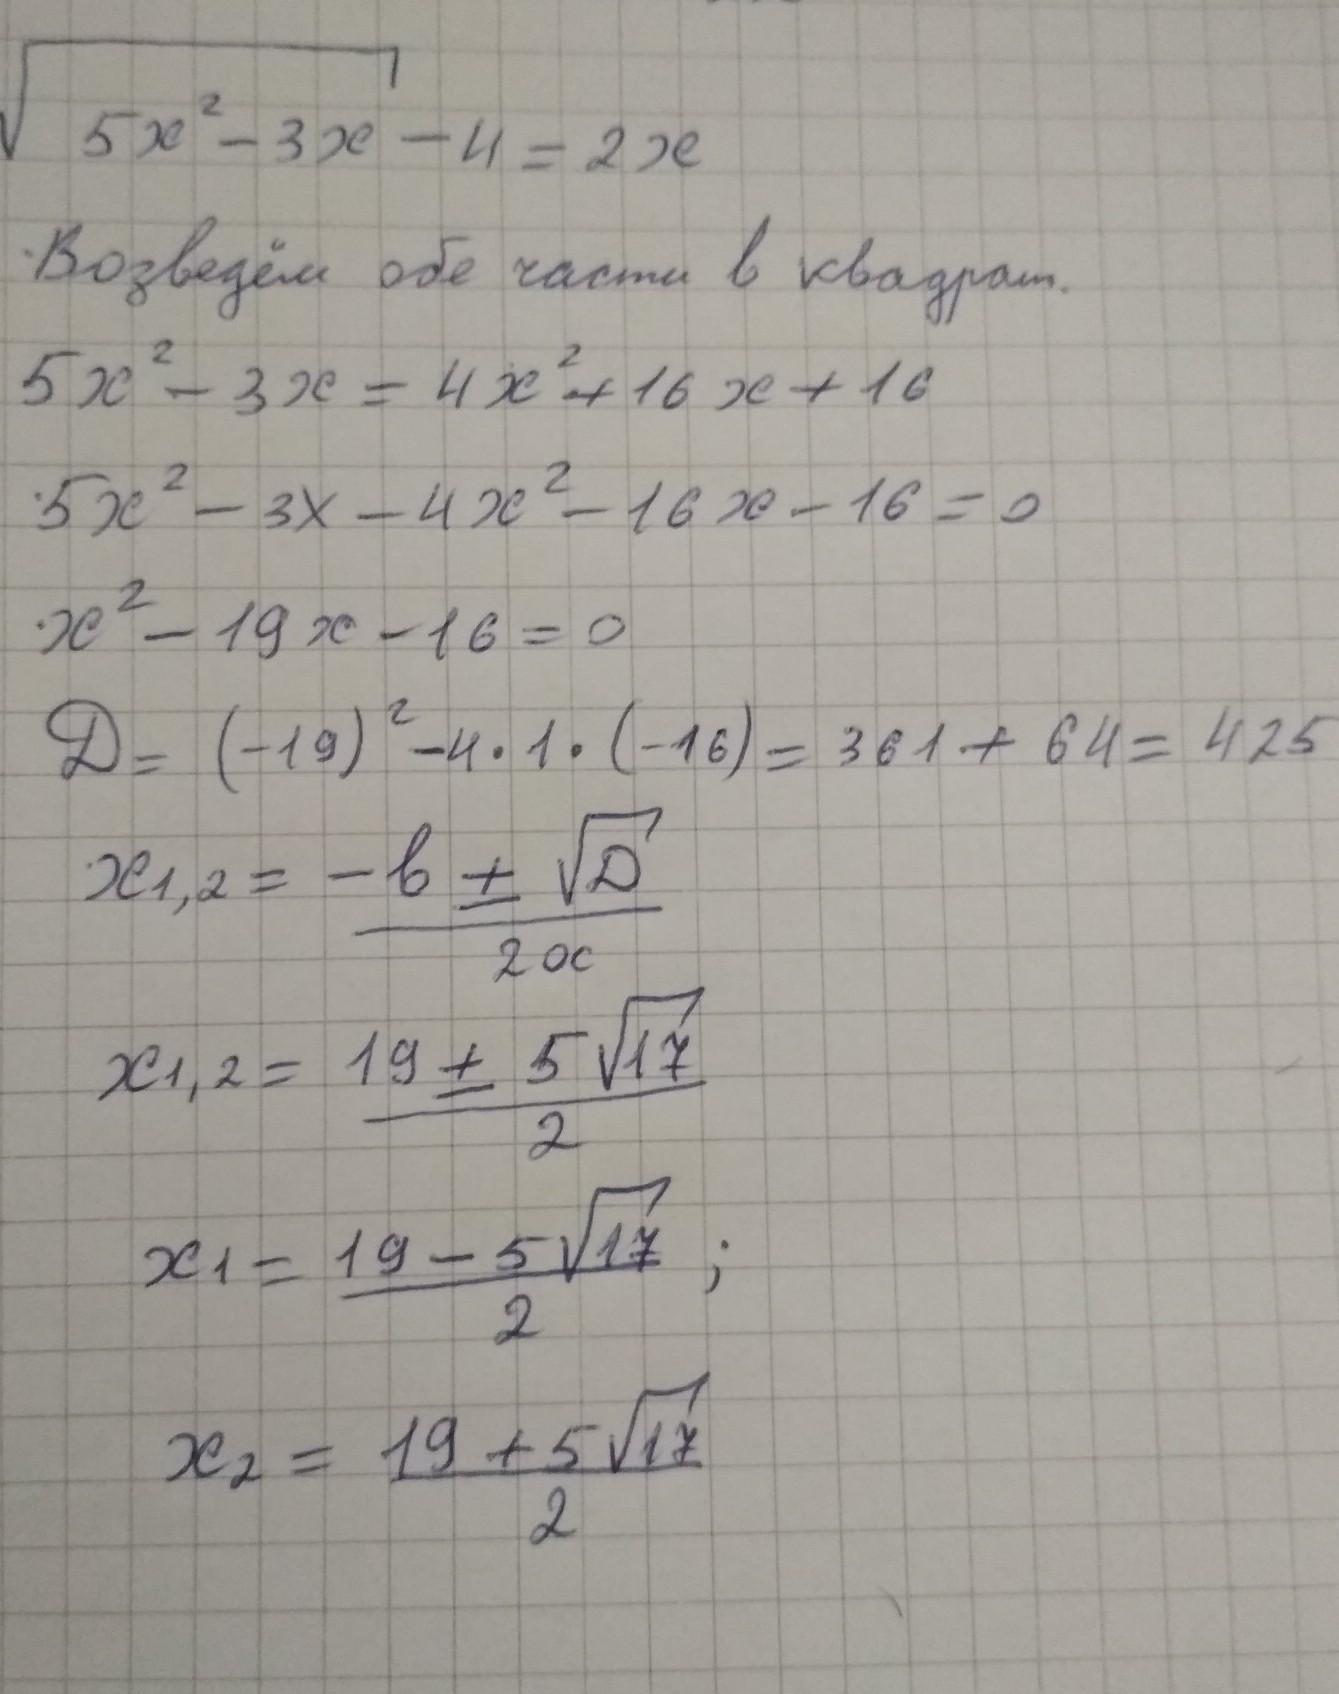 √(5x² - 3x) - 4 = 2x
Возведём обе части в квадрат.
5x² - 3x = 4x² + 16x + 16
5x² - 3x - 4x² - 16x - 16 = 0
x² - 19x - 16 = 0
D = (-19)² - 4·1·(-16) = 361 + 64 = 425
x1,2 = (-b ± √D) / 2a
x1,2 = (19 ± 5√17) / 2
x1 = (19 - 5√17) / 2 ;
x2 = (19 + 5√17) / 2